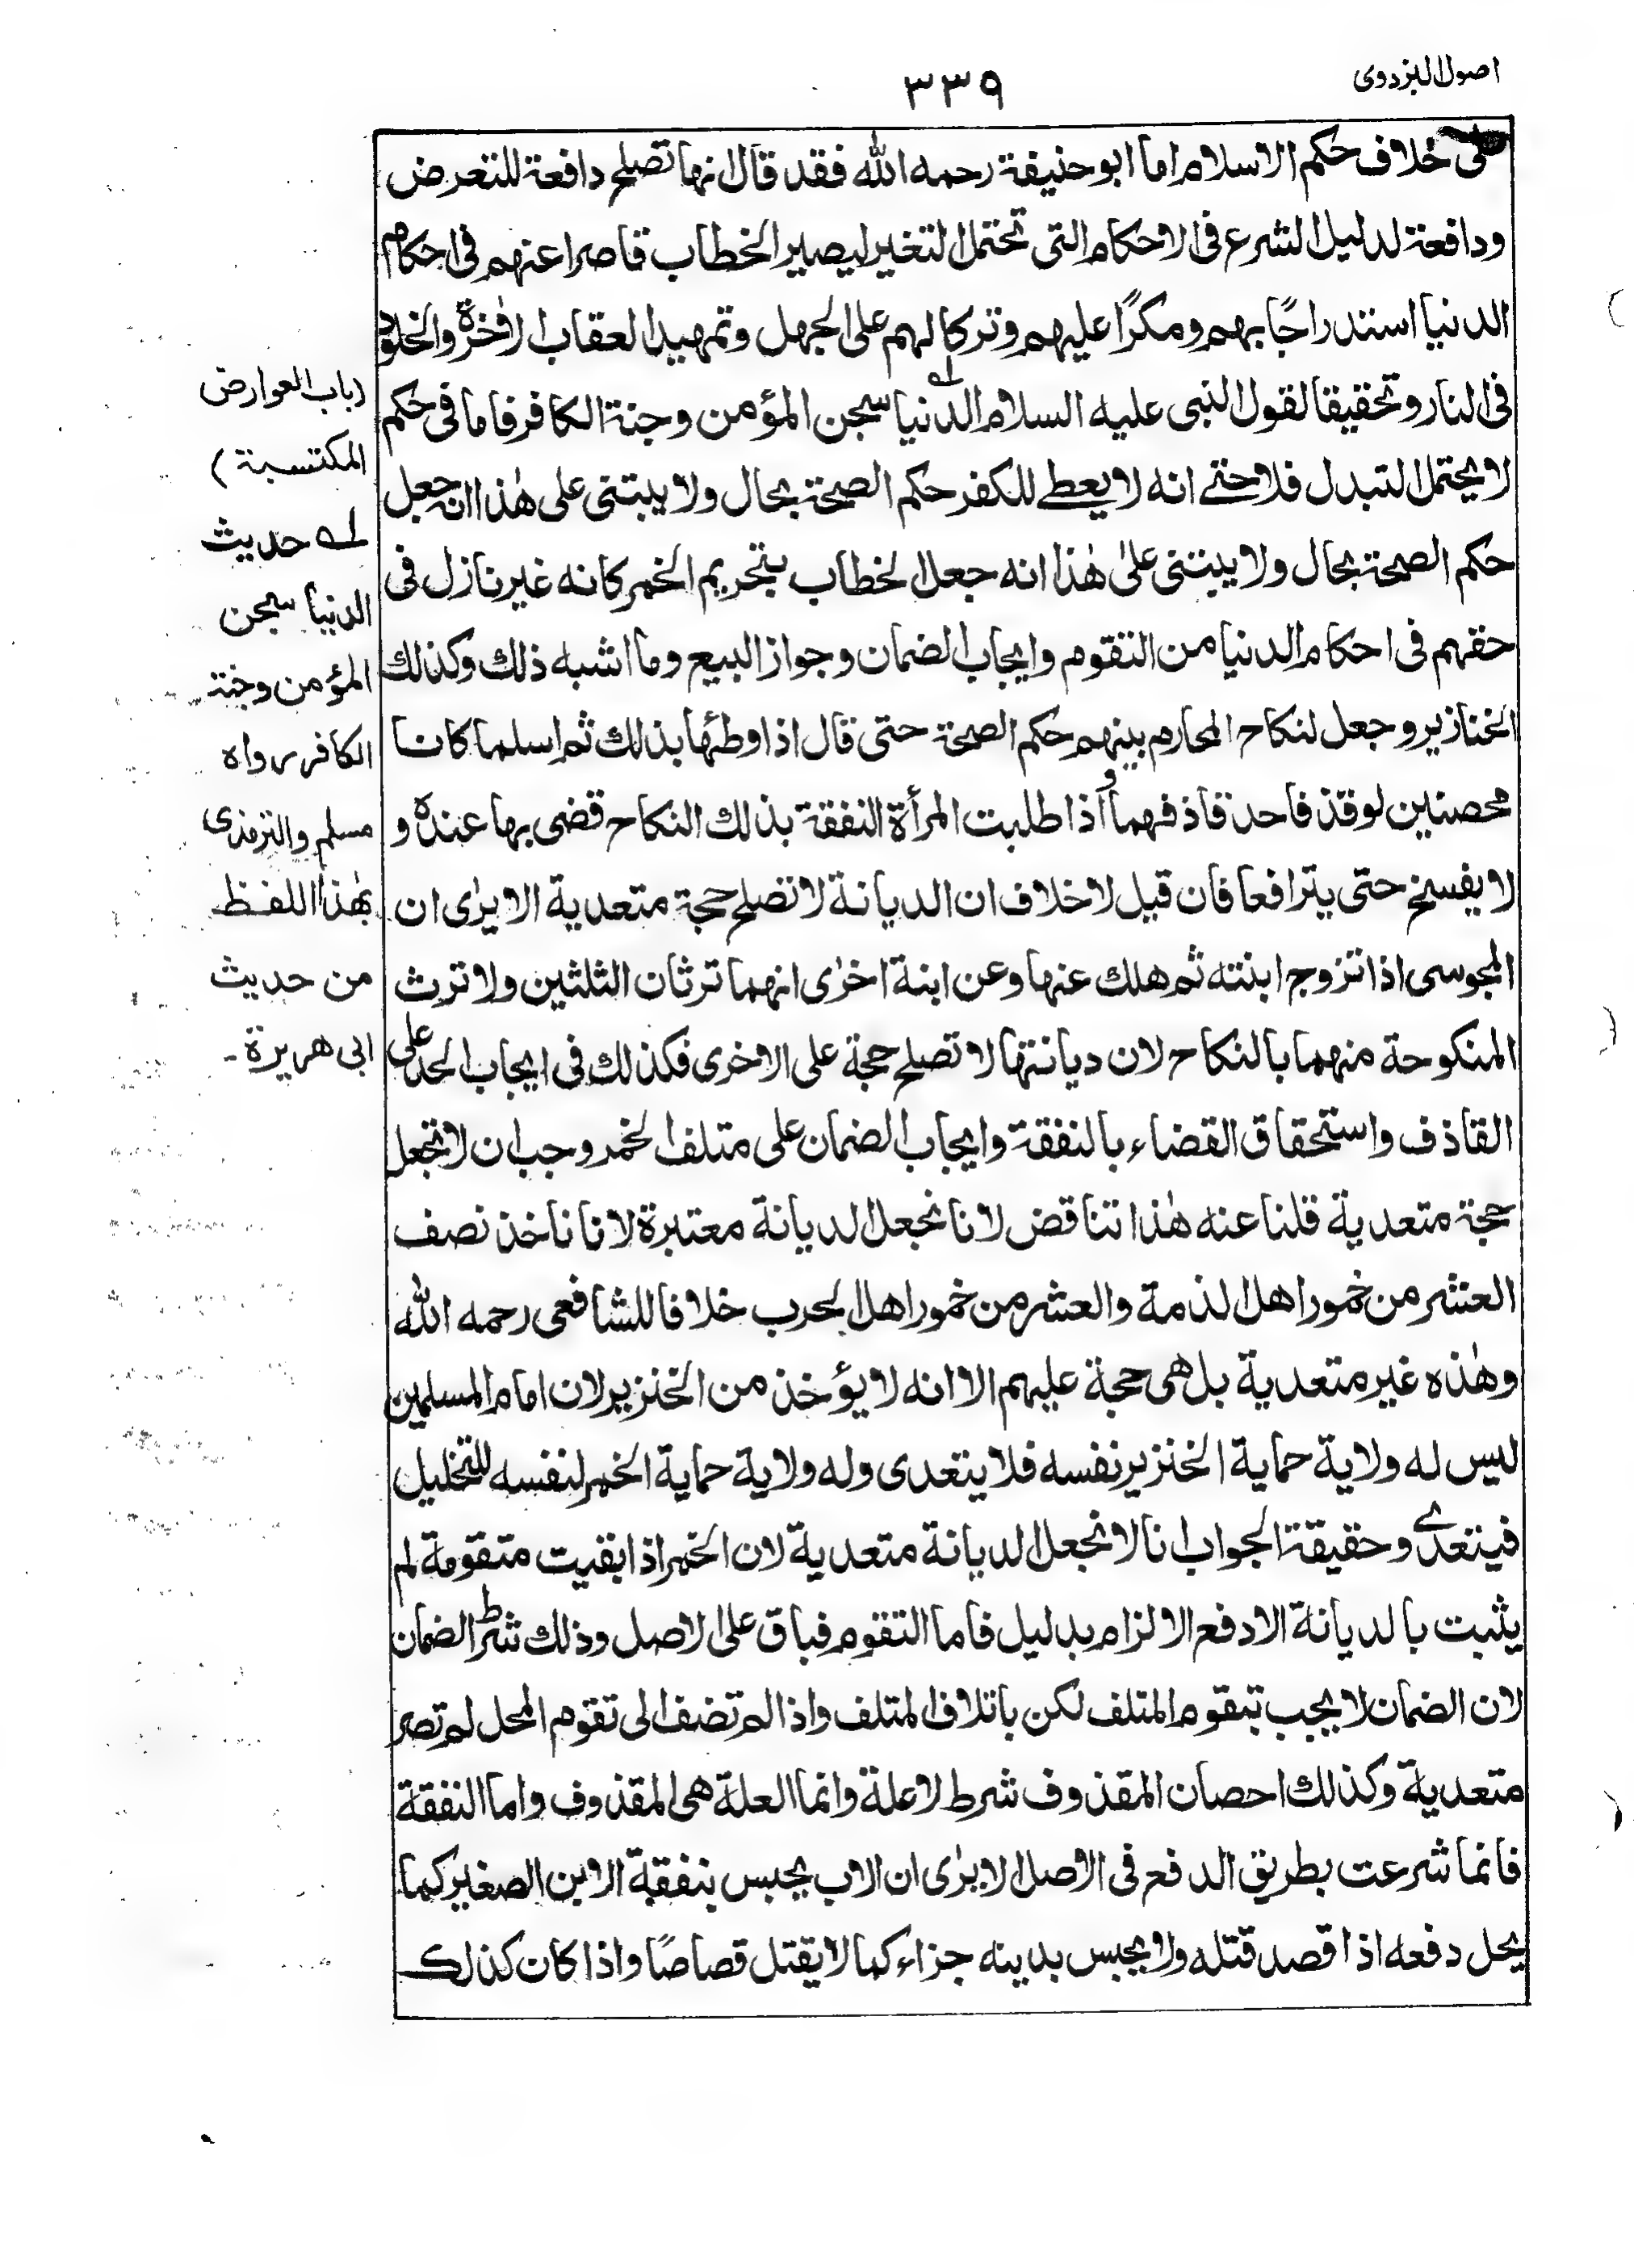 اصول البزدوى
٣٣٩
على خلاف حكم الاسلام اما ابو حنيفة رحمه الله فقد قال انها تصلح دافعة للتعرض
ودافعة لدليل الشرع فى الاحكام التى تحتمل التغير ليصير الخطاب قاصرا عنهم فى احكام
الدنيا استدراجًا بهم ومكرًا عليهم وتركا لهم على الجهل وتمهيدا لعقاب الاٰخرة والخلود
فى النار وتحقيقا لقول النبى عليه السلام الدنيا سجن المؤمن وجنة الكافر فاما فى حكم
لا يحتمل التبدل فلا حتے انه لا يعطے للكفر حكم الصحة بحال ولا يبتنى على هٰذا انه جعل
حكم الصحة بحال ولا يبتنى علىٰ هٰذا انه جعل الخطاب بتحريم الخمر كانه غير نازل فى
حقهم فى احكام الدنيا من التقوم وايجاب الضمان وجواز البيع وما اشبه ذلك وكذلك
الخنازير وجعل لنكاح المحارم بينهم حكم الصحة حتى قال اذا وطئها بذلك ثم اسلما كانا
محصنين لو قذفا حد قاذفهما واذا طلبت المرأة النفقة بذلك النكاح قضى بها عنده و
لا يفسخ حتى يترافعا فان قيل لا خلاف ان الديانة لا تصلح حجة متعدية الا يرٰى ان
المجوسى اذا تزوج ابنته ثم هلك عنها وعن ابنة اخرٰى انهما ترثان الثلثين ولا ترث
المنكوحة منهما بالنكاح لان ديانتها لا تصلح حجة على الاخرى فكذلك فى ايجاب الحد على
القاذف واستحقاق القضاء بالنفقة وايجاب الضمان على متلف الخمر وجب ان لا تجعل
حجة متعدية قلنا عنه هٰذا تناقض لانا نجعل الديانة معتبرة لانا ناخذ نصف
العشر من خمور اهل الذمة والعشر من خمور اهل الحرب خلافا للشافعى رحمه الله
وهٰذه غير متعدية بل هى حجة عليهم الا انه لا يؤخذ من الخنزير لان امام المسلمين
ليس له ولاية حماية الخنزير نفسه فلا يتعدى وله ولاية حماية الخمر لنفسه للتخليل
فيتعدے وحقيقة الجواب انا لا نجعل الديانة متعدية لان الخمر اذا بقيت متقومة لم
يثبت بالديانة الا دفع الالزام بدليل فاما التقوم فباق على الاصل وذلك شرط الضمان
لان الضمان لا يجب بتقوم المتلف لكن باتلاف المتلف واذا لم تضف الى تقوم المحل لم تصر
متعدية وكذلك احصان المقذوف شرط لا علة وانما العلة هى المقذوف واما النفقة
فانما شرعت بطريق الدفع فى الاصل الا يرٰى ان الاب يحبس بنفقة الابن الصغير كما
يحل دفعه اذا قصد قتله ولا يحبس بدينه جزاء كما لا يقتل قصاصًا واذا كان كذلك
(باب العوارض
المكتسبة)
لـه حديث
الدنيا سجن
المؤمن وجنة
الكافر رواه
مسلم والترمذى
بهٰذا اللفظ
من حديث
ابى هريرة ۔